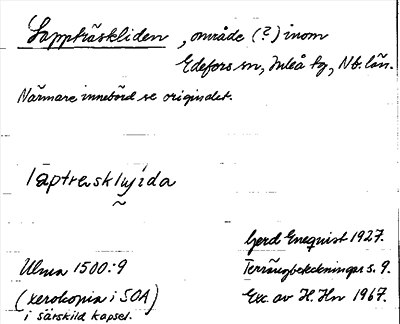 Lappträskliden, område (?) inom
Edefors sn, Luleå tg, Nb. län.
Närmare innebörd se originalet.
laptresklijda
Gerd Enequist 1927.
Ulma 1500:9
Terrängbeteckningar s. 9.
(xerokopia i SOA)
Exc. av H. Hn 1967.
i särskild kapsel.